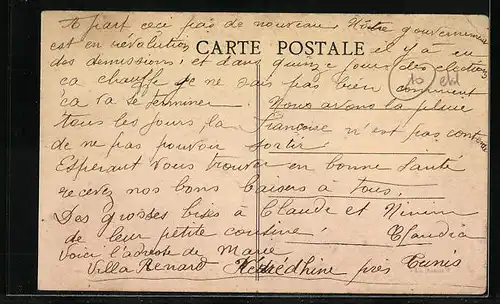 A part ceci pas de nouveau. Notre gouvernement
est en révolution
CARTE POSTALE
il y a eu
des demissions, et dans quinze jours des elections
ça chauffe je ne sais pas bien comment
ça va se terminer. Nous avons la pluie
tous les jours, la Françoise n'est pas contente
de ne pas pouvoir sortir.
Esperant vous trouver en bonne santé
recevez nos bons baisers à tous.
Des grosses bises à Claude et Ninim
de leur petite cousine. Claudia
Voici l'adresse de Marie
Villa Renard près Tunis
10